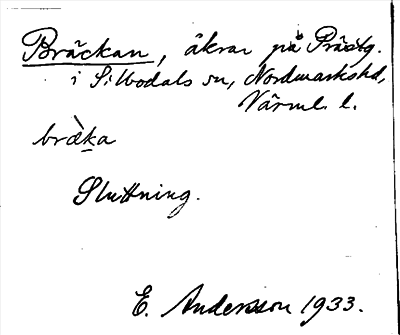 Bräckan, åkrar på Prästg.
i Silbodals sn, Nordmarkshd,
Värml. l.
bræ̀ka
Sluttning.
E. Andersson 1933.